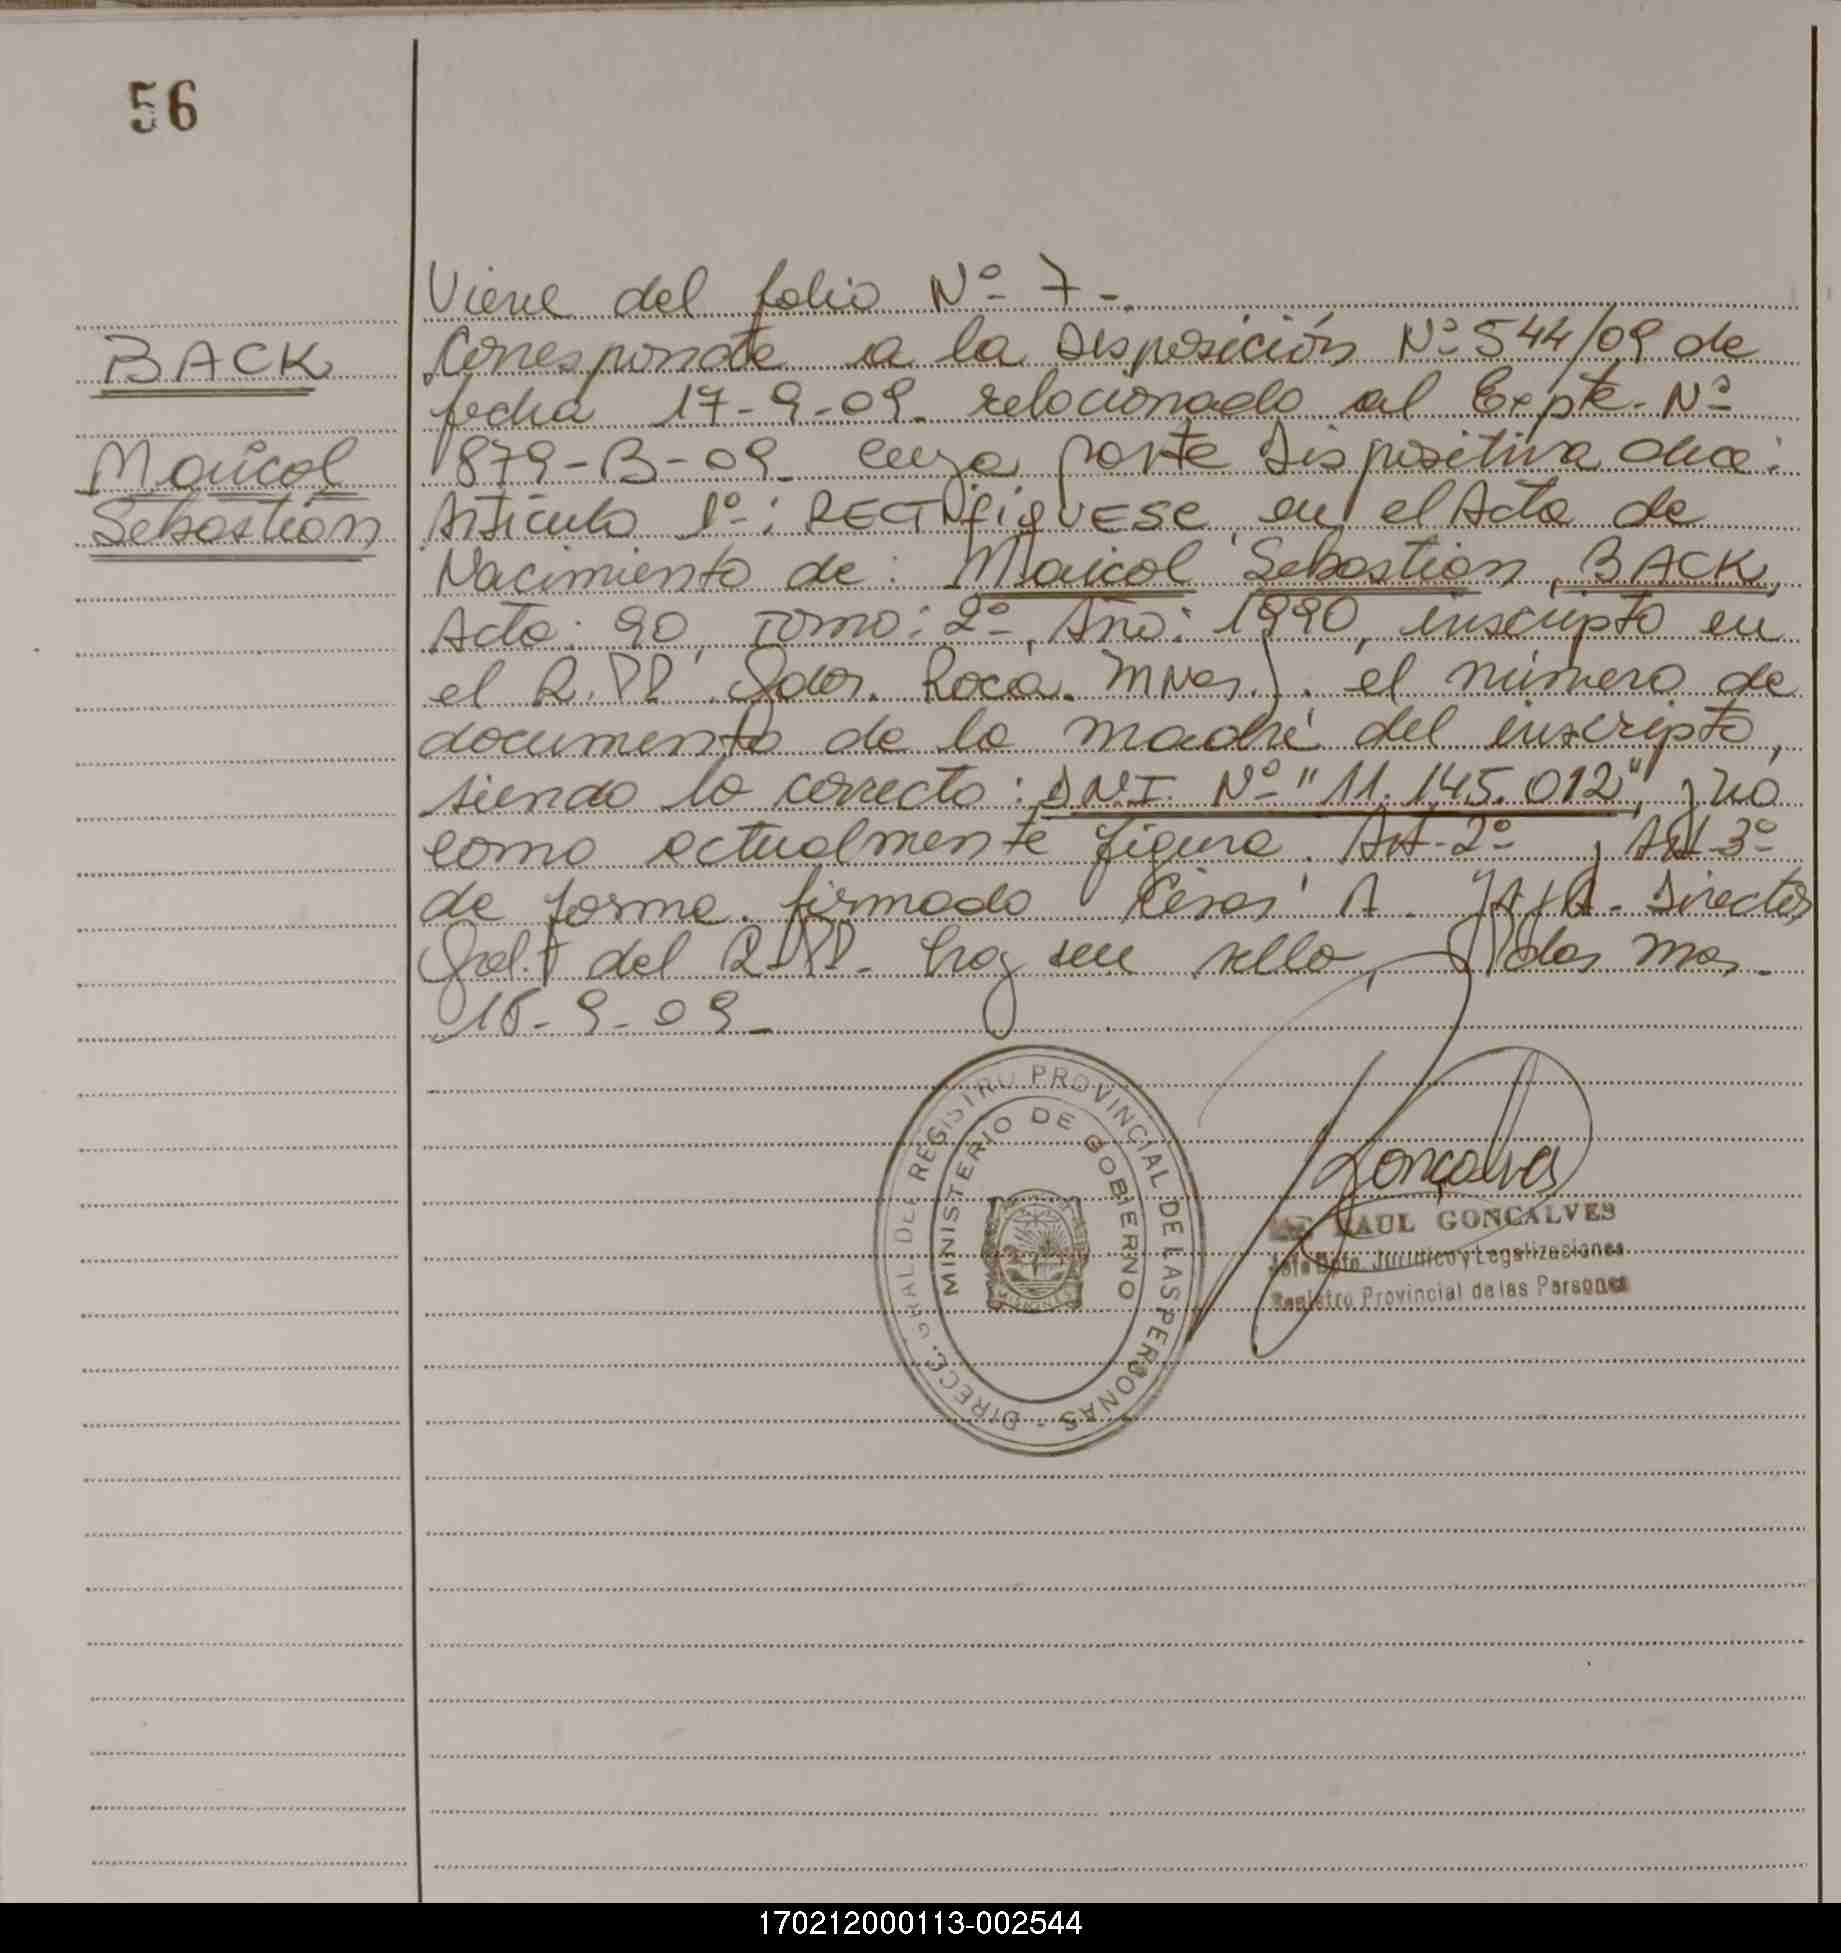 56
Viene del folio Nº 7-.
BACK
Corresponde a la Disposición Nº 544/09 de
fecha 17-9-09. relacionado al Expte. Nº
Maicol
879-B-09. cuya parte dispositiva dice:
Sebastián
Artículo 1º: RECTIFIQUESE, en el Acta de
Nacimiento de: Maicol Sebastián, BACK,
Acta: 90, Tomo: 2º, Año: 1990, inscripto en
el R.PP. Gdor. Roca. Mnes.). el número de
documento de la madre del inscripto,
siendo lo correcto: DNI. Nº "11.145.012", y no
como actualmente figura. Art. 2º y Art. 3º
de forma. firmado César A. Director
Gral. del R.PP. hay un sello, Pdas Mnes.
18-9-09-
DIREC. GRAL. DEL REGISTRO PROVINCIAL DE LAS PERSONAS -
MINISTERIO DE GOBIERNO
MISIONES
Goncalves
RAUL GONCALVES
Jefe Dpto. Jurídico y Legalizaciones
Registro Provincial de las Personas
170212000113-002544